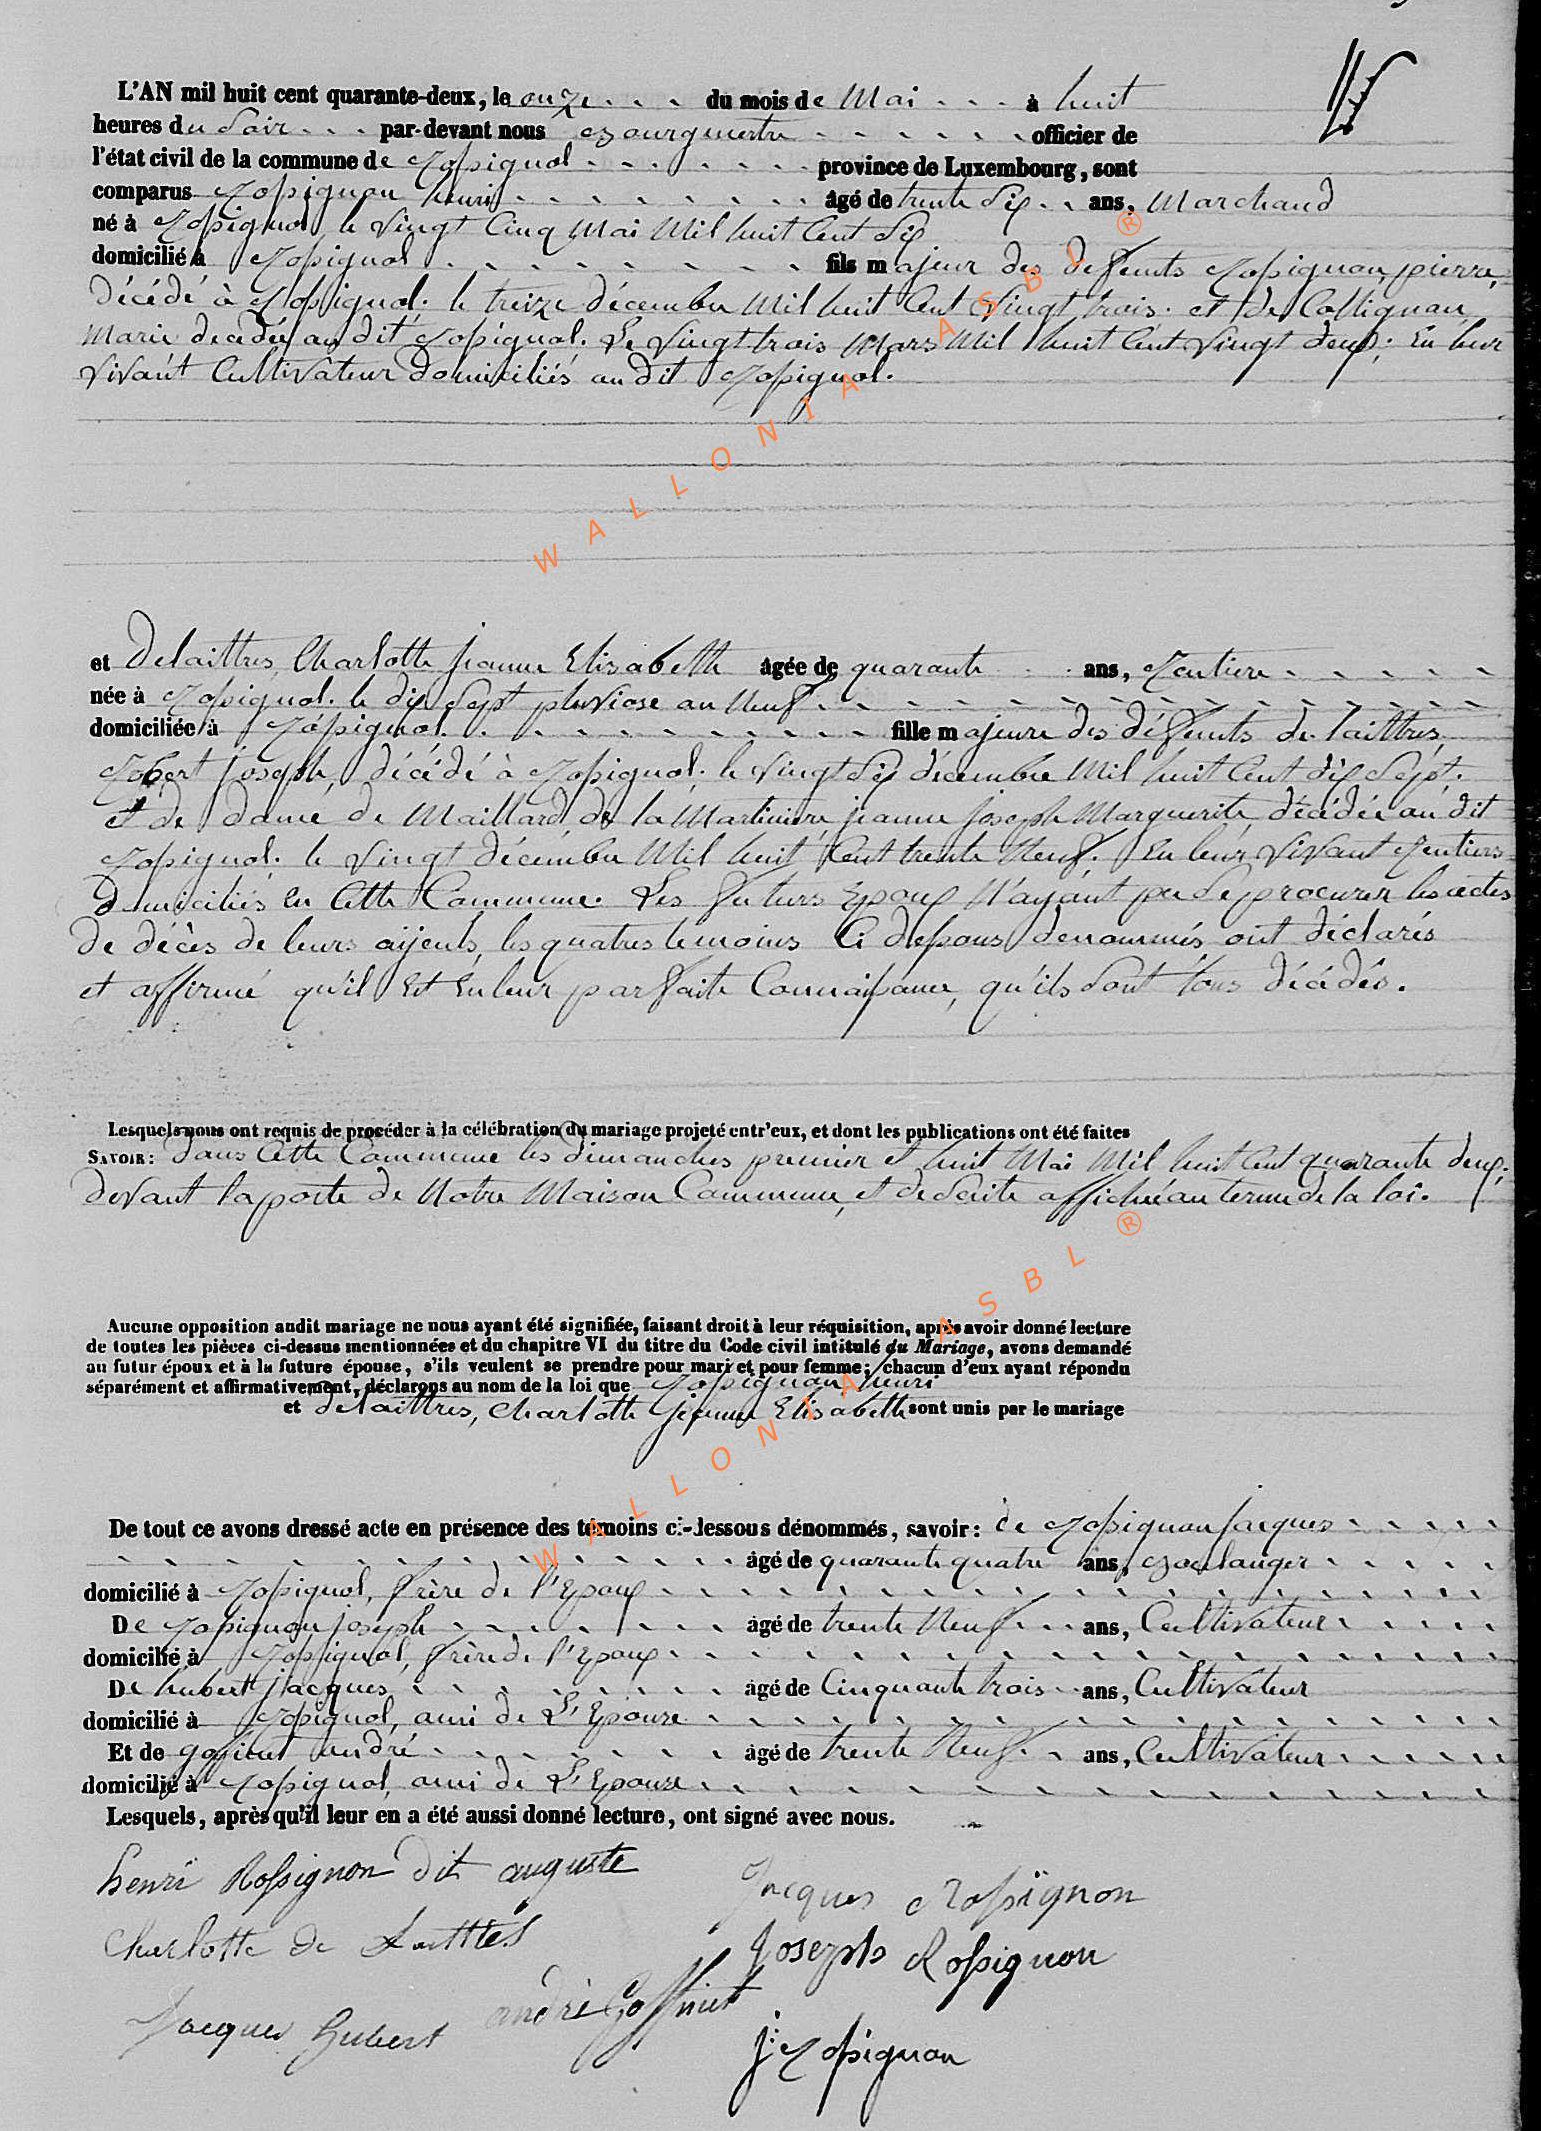 L'AN mil huit cent quarante-deux, le onze du mois de Mai à huit
heures du Soir par-devant nous Bourgmestre officier de
l'état civil de la commune de Rossignol province de Luxembourg, sont
comparus Rossignon henri âgé de trente Six ans, Marchand
né à Rossignol, le Vingt Cinq Mai Mil huit Cent Six
domicilié à Rossignol fils majeur des deffunts Rossignon, pierre,
décédé à Rossignol, le treize décembre Mil huit Cent Vingt trois. et de Collignon,
Marie decédée au dit Rossignol. Le Vingt trois Mars Mil huit Cent Vingt deux; En leur
Vivant Cultivateur Domiciliés au dit Rossignol.
et Delaittres, Charlotte Jeanne Elisabeth âgée de quarante ans, Rentiere
née à Rossignol. le dix Sept pluviose an Neuf
domiciliée à Rossignol. fille majeure des défunts de laittres,
Robert joseph, décédé à Rossignol. le Vingt Six décembre Mil huit Cent dix Sept.
Et de dame de Maillard, de la Martiniere, jeanne joseph Marguerite, décédée au dit
Rossignol. le Vingt décembre Mil huit Cent trente Neuf. En leur Vivant Rentiers
Domiciliés en Cette Commune. Les futurs Epoux N'ayant pu Se procurer les actes
de décès de leurs aijeuls, les quatres temoins Ci dessous denommés ont déclarés
et affirmé qu'il Est En leur parfaite Connaissance, qu'ils Sont tous décédés.
Lesquels nous ont requis de procéder à la célébration du mariage projeté entr'eux, et dont les publications ont été faites
SAVOIR: Dans Cette Commune les dimanches premier et huit Mai Mil huit Cent quarante deux;
devant la porte de Notre Maison Commune, et de Suite affichée au terme de la loi.
Aucune opposition audit mariage ne nous ayant été signifiée, faisant droit à leur réquisition, après avoir donné lecture
de toutes les pièces ci-dessus mentionnées et du chapitre VI du titre du Code civil intitulé du Mariage, avons demandé
au futur époux et à la future épouse, s'ils veulent se prendre pour mari et pour femme; chacun d'eux ayant répondu
séparément et affirmativement, déclarons au nom de la loi que Rossignon henri
et delaittres, Charlotte Jeanne Elisabeth sont unis par le mariage
De tout ce avons dressé acte en présence des témoins ci-dessous dénommés, savoir: de Rossignon Jacques
âgé de quarante quatre ans, Boulanger
domicilié à Rossignol, frère de l'Epoux
De Rossignon joseph âgé de trente Neuf ans, Cultivateur
domicilié à Rossignol, frère de l'Epoux
De hubert jacques âgé de Cinquante trois ans, Cultivateur
domicilié à Rossignol, ami de L'Epouse
Et de goffinet andré âgé de trente Neuf ans, Cultivateur
domicilié à Rossignol, ami de L'Epouse
Lesquels, après qu'il leur en a été aussi donné lecture, ont signé avec nous.
henri Rossignon dit auguste
Jacques Rossignon
Charlotte de Laittres
Joseph Rossignon
Jacques Hubert andré Goffinet
j: Rossignon
WALLONIA ASBL ®
WALLONIA ASBL ®